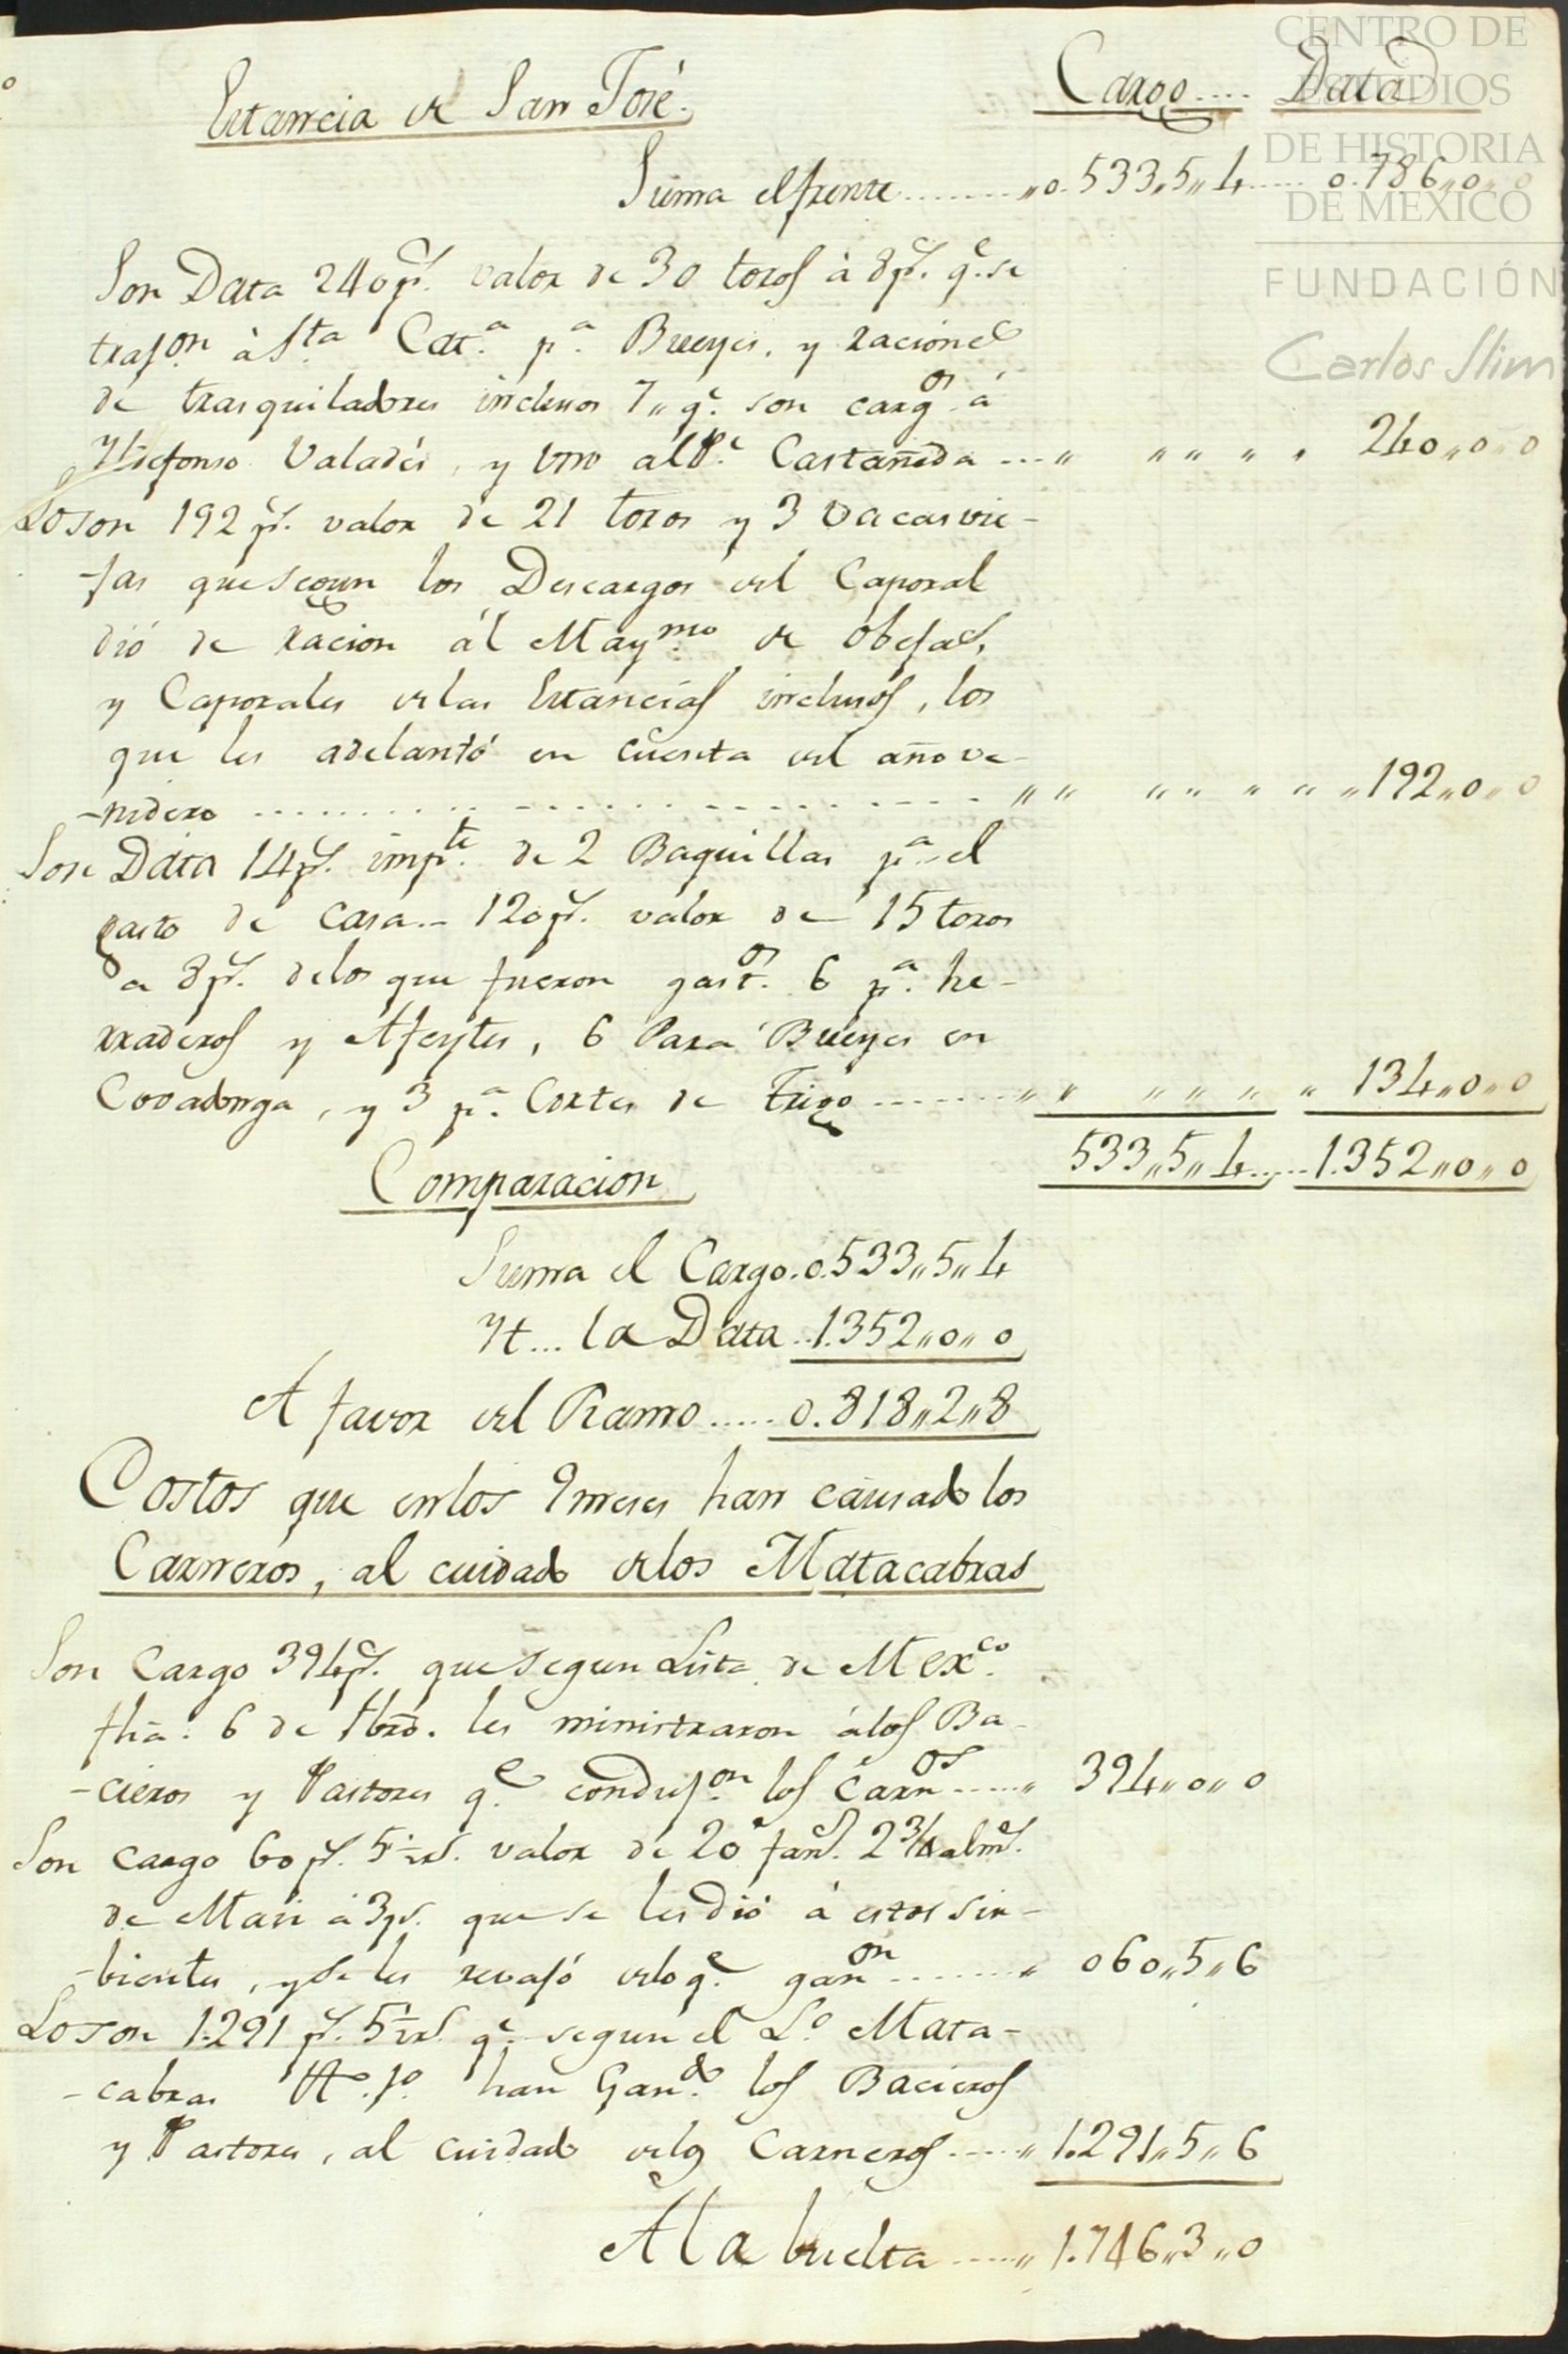 Estancia de San José. Cargo .... Data
Suma el frente ........ „0. 533„5„4 ..... 0.786„0„0
Son Data 240 p.s valor de 30 toros à 8 p.s q.e se
traj.on à S.ta Cat.a p.a Bueyes, y racion.es
de trasquiladores inclusos 7„ q.e son carg.os á
Yldefonso Valadés, y uno al P.e Castañeda ...„ „ „ „ „ 240„0„0
Lo son 192 p.s valor de 21 toros y 3 vacas vie-
-jas que segun los Descargos del Caporal
dió de racion ál May.mo de Obejas,
y Caporales de las Estancias inclusos, los
que les adelantó en cuenta del año ve-
-nidero ................ „ „ „ „ „ „ „192„0„0
Son Data 14 p.s imp.te de 2 Baquillas p.a el
gasto de casa.- 120 p.s valor de 15 toros
a 8 p.s delos que fueron gast.os 6 p.a he-
rraderos y Afeytes, 6 Para Bueyes en
Covadonga, y 3 p.a Cortes de Trigo ........ „ „ „ „ „ „ 134„0„0
533„5„4 ..... 1.352„0„0
Comparacion
Suma el Cargo.0.533„5„4
Yt... la Data ..1.352„0„0
A favor del Ramo ..... 0.818„2„8
Costos que en los 9 meses han causado los
Carneros, al cuidado de los Matacabras
Son Cargo 394 p.s que segun Lista de Mex.co
fhã. 6 de 9brẽ. les ministraron álos Ba-
-cieros y Pastores q.e conduj.on los Carn.os .....„ 394„0„0
Son cargo 60 p.s 5½ rs. valor de 20 fan.s 2¾ alm.s
de Mais á 3 ps. que se les dió á estos sir-
-bientes, y se les revajó delo q.e gan.on ........„ 060„5„6
Lo son 1.291 p.s 5½ rs. q.e segun el L.o Mata-
-cabras han Gan.do los Bacieros
y Pastores, al cuidado delos Carneros .....„ 1.291„5„6
A la buelta .....„ 1.746„3„0
CENTRO DE
ESTUDIOS
DE HISTORIA
DE MÉXICO
FUNDACIÓN
Carlos Slim